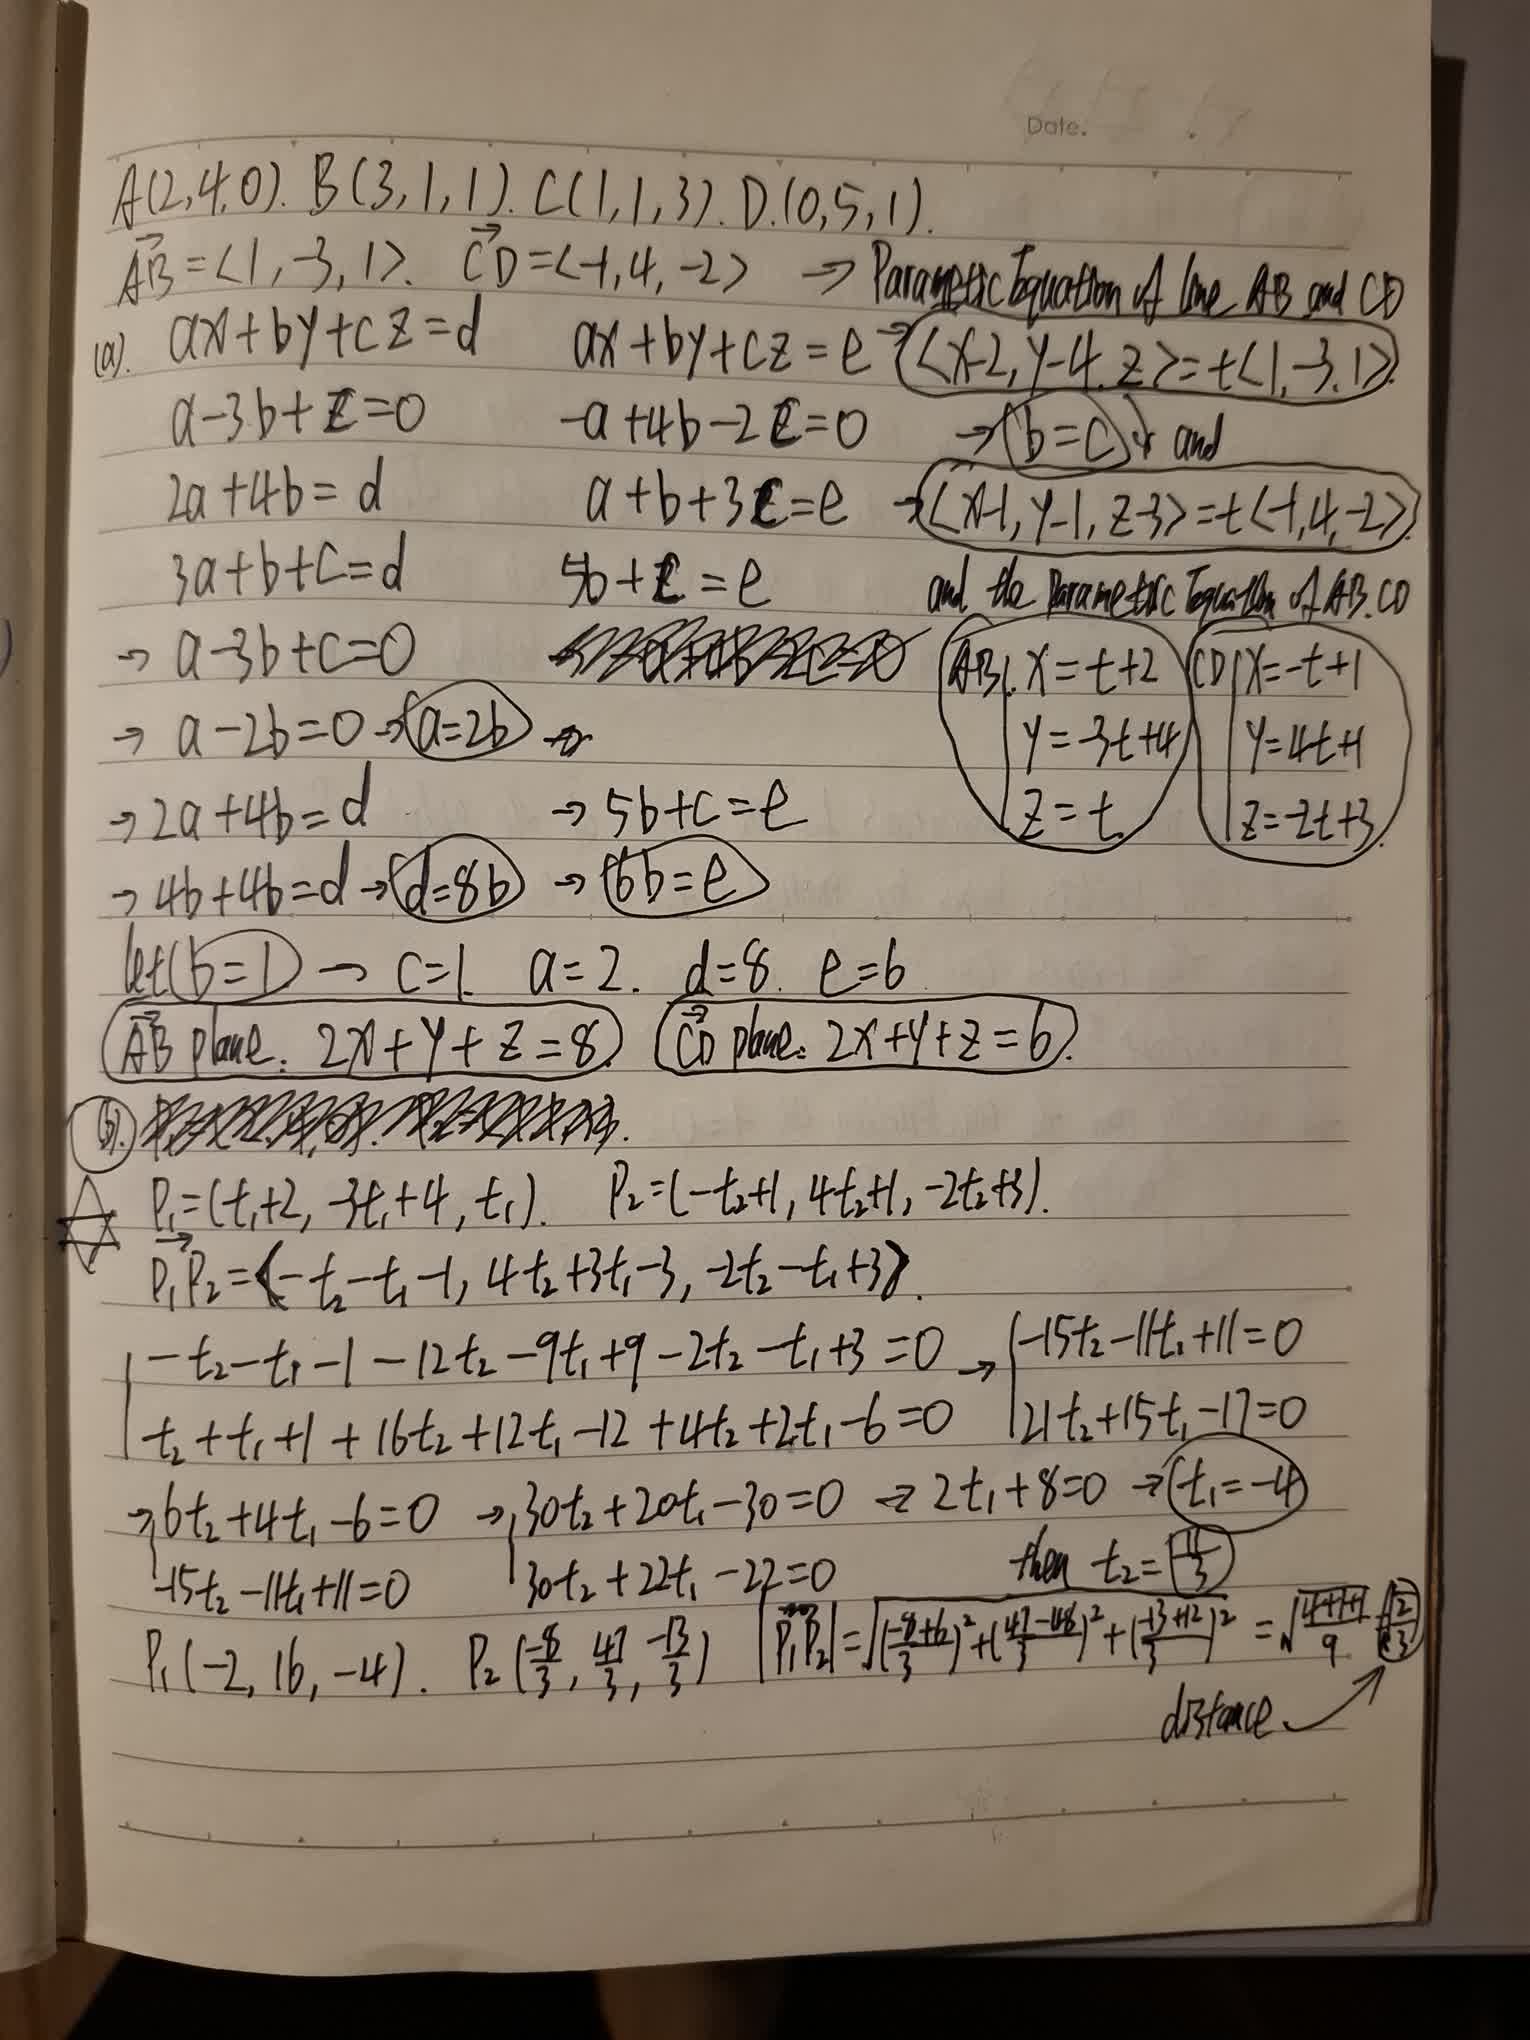 Date.
A(2,4,0). B(3,1,1). C(1,1,3). D.(0,5,1).
→AB = <1,-3,1>. →CD = <-1,4,-2> → Parametric Equation of line AB and CD
(a). ax+by+cz=d ax+by+cz=e → <x-2, y-4, z> = t<1,-3,1>.
a-3b+c=0 -a+4b-2c=0 → b=c and
2a+4b=d a+b+3c=e → <x-1, y-1, z-3> = t<-1,4,-2>.
3a+b+c=d 5b+c=e and the Parametric Equation of AB.CD
→ a-3b+c=0 AB. x=t+2 CD x=-t+1
→ a-2b=0 → a=2b → y=-3t+4 y=4t+1
→ 2a+4b=d → 5b+c=e z=t. z=-2t+3.
→ 4b+4b=d → d=8b → 6b=e
let b=1 → c=1. a=2. d=8. e=6
→AB plane: 2x+y+z=8. →CD plane: 2x+y+z=6.
(b).
P₁=(t₁+2, -3t₁+4, t₁). P₂=(-t₂+1, 4t₂+1, -2t₂+3).
→P₁P₂ = <-t₂-t₁-1, 4t₂+3t₁-3, -2t₂-t₁+3>.
-t₂-t₁-1-12t₂-9t₁+9-2t₂-t₁+3=0 → -15t₂-11t₁+11=0
t₂+t₁+1+16t₂+12t₁-12+4t₂+2t₁-6=0 21t₂+15t₁-17=0
→ 6t₂+4t₁-6=0 → 30t₂+20t₁-30=0 → 2t₁+8=0 → t₁=-4
-15t₂-11t₁+11=0 30t₂+22t₁-22=0 then t₂=11/3
P₁(-2, 16, -4). P₂(-8/3, 47/3, -13/3) |→P₁P₂| = √((-8+6/3)²+(47-48/3)²+(-13+12/3)²) = √(4+1+1/9) = √(2/3)
distance